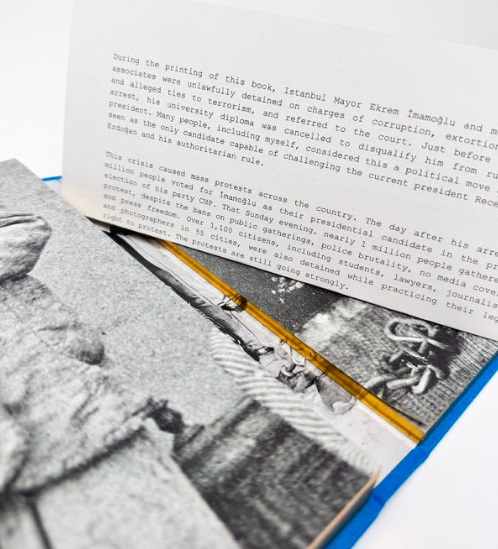 During the printing of this book, Istanbul Mayor Ekrem İmamoğlu and
associates were unlawfully detained on charges of corruption,
and alleged ties to terrorism, and referred to the court. Just before
arrest, his university diploma was cancelled to disqualify him from
president. Many people, including myself, considered this a political move
seen as the only candidate capable of challenging the current president
Erdoğan and his authoritarian rule.
This crisis caused mass protests across the country. The day after his
million people voted for İmamoğlu as their presidential candidate in the
election of his party CHP. That Sunday evening, nearly 1 million people
protest, despite the bans on public gatherings, police brutality, no media
and press freedom. Over 1,100 citizens, including students, lawyers,
and photographers in 55 cities, were also detained while practicing their
right to protest. The protests are still going strongly.